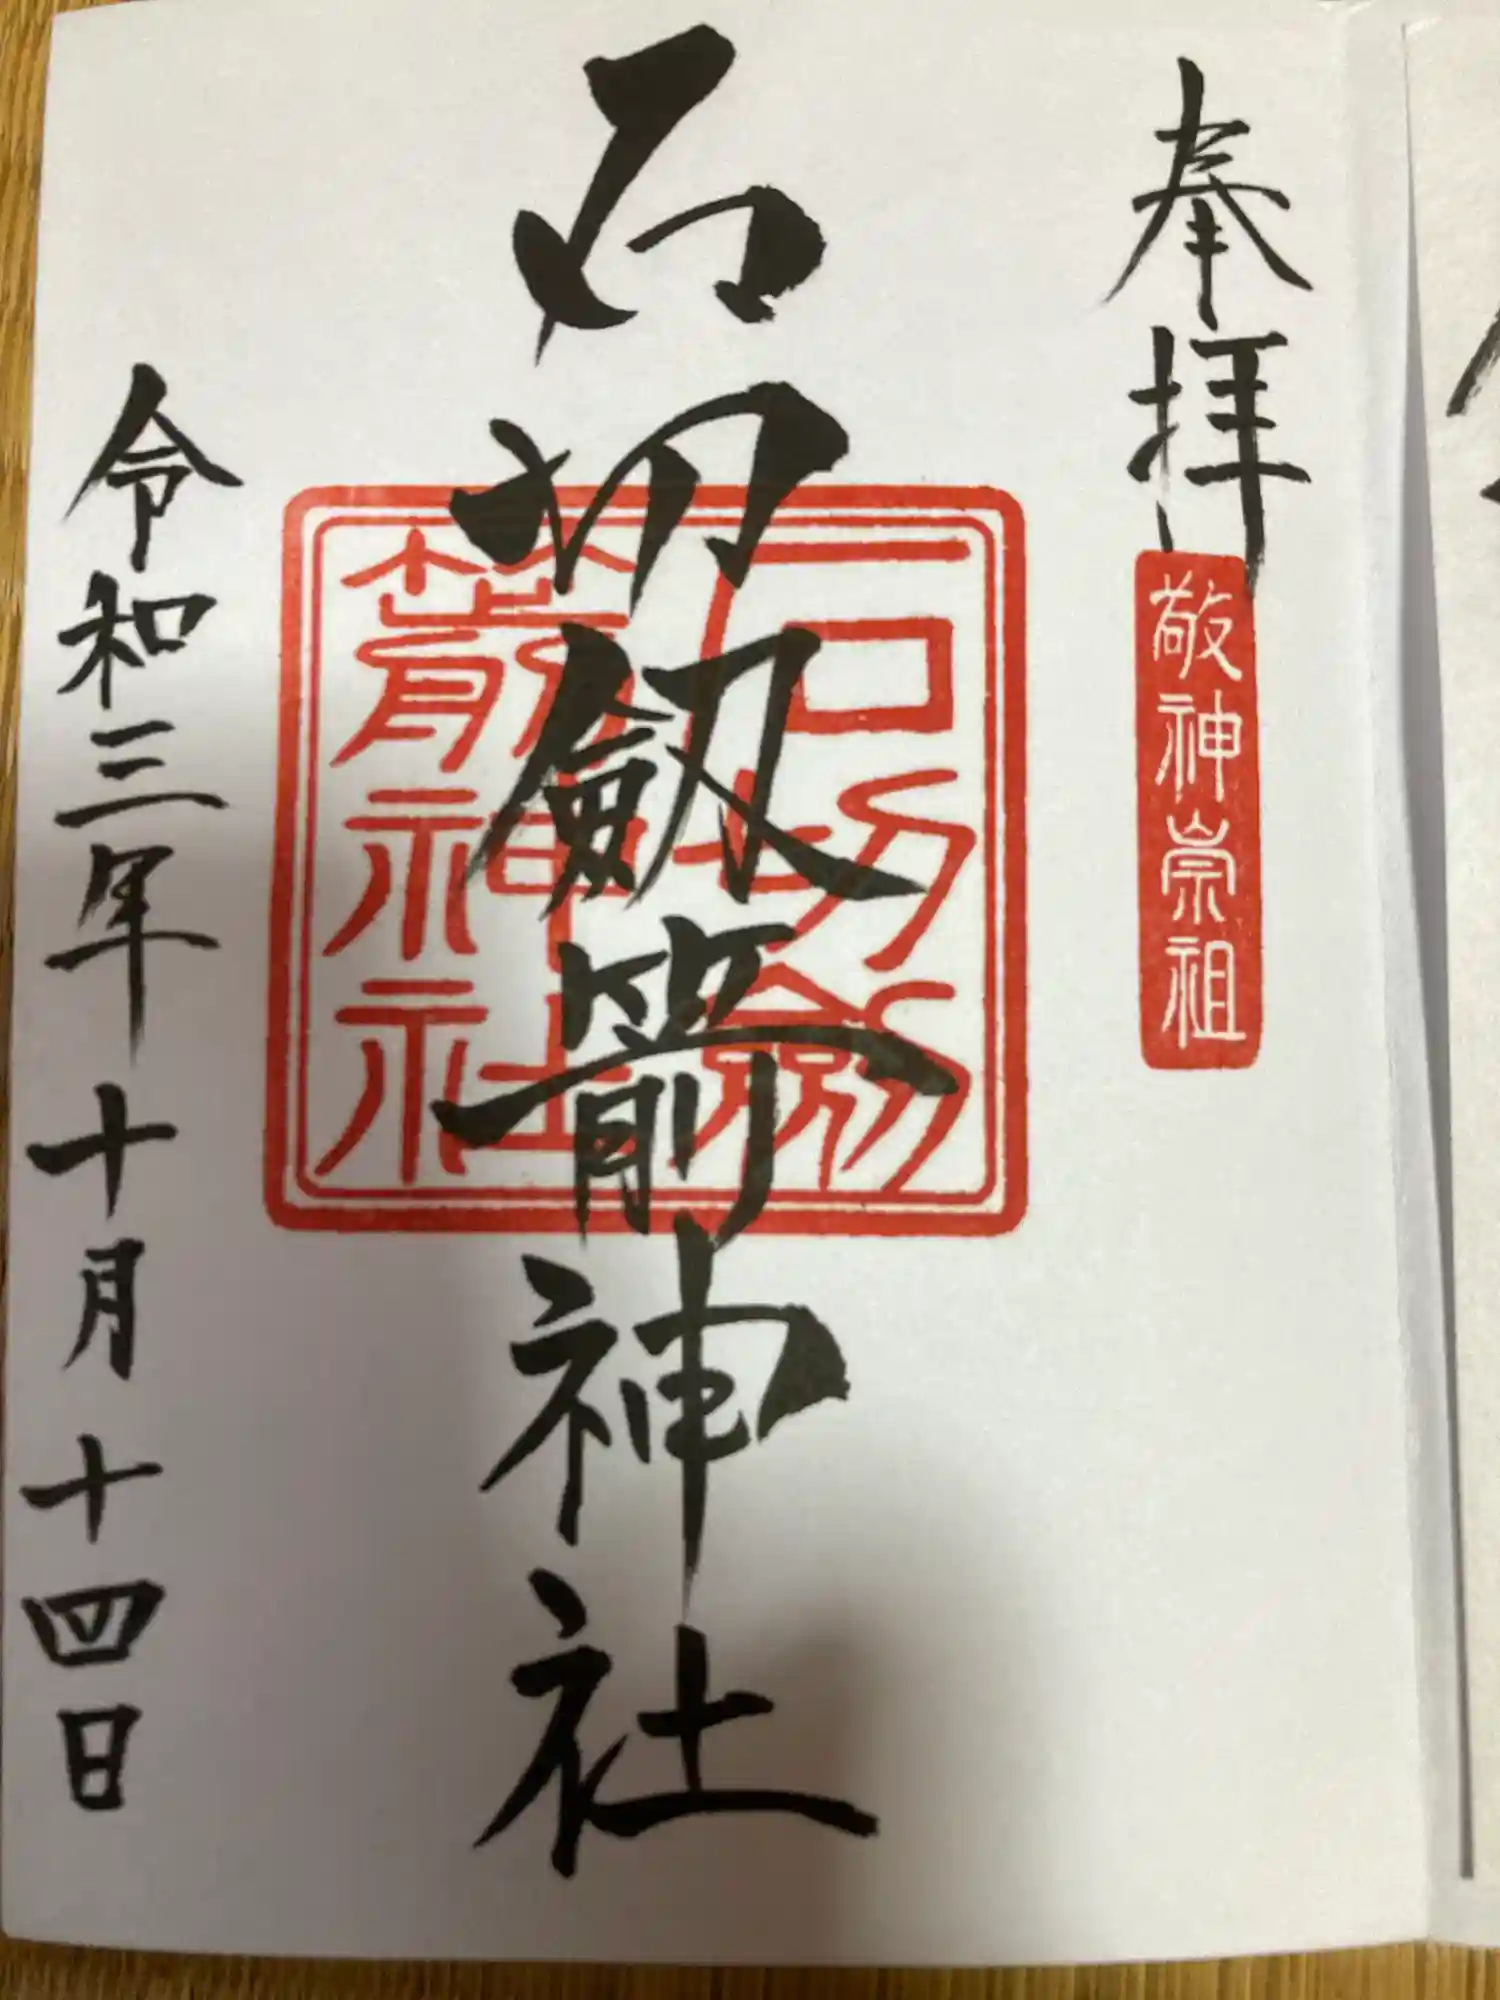 奉拝
敬神崇祖
石切劔箭神社
石切劔
箭神社
令和三年十月十四日